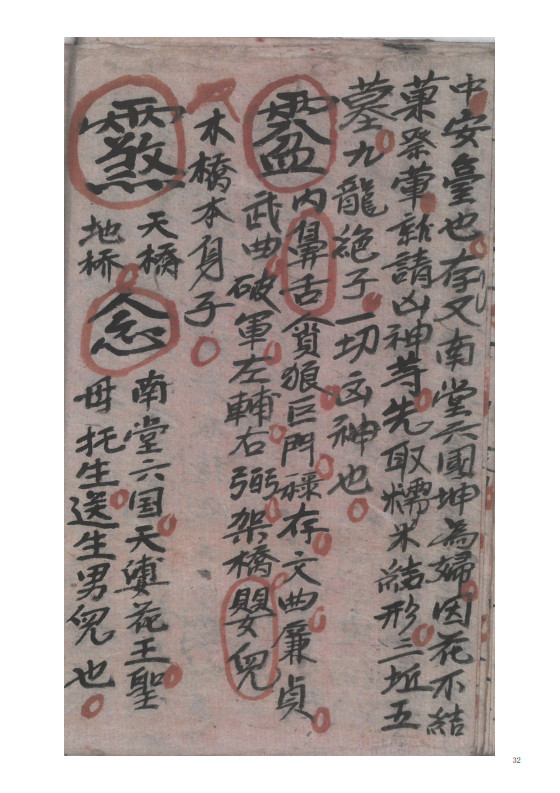 中安臺也存又南堂六國坤為婦因花不結
菓祭葷新請凶神等先取糯米結形三坵五
墓九龍絶子一切凶神也
內鼻舌貪狼巨門祿存文曲廉貞
武曲破軍左輔右弼架橋嬰兒
木橋本身子
天橋
地桥
念
南堂六国天輿花王聖
母托生送生男兒也
32